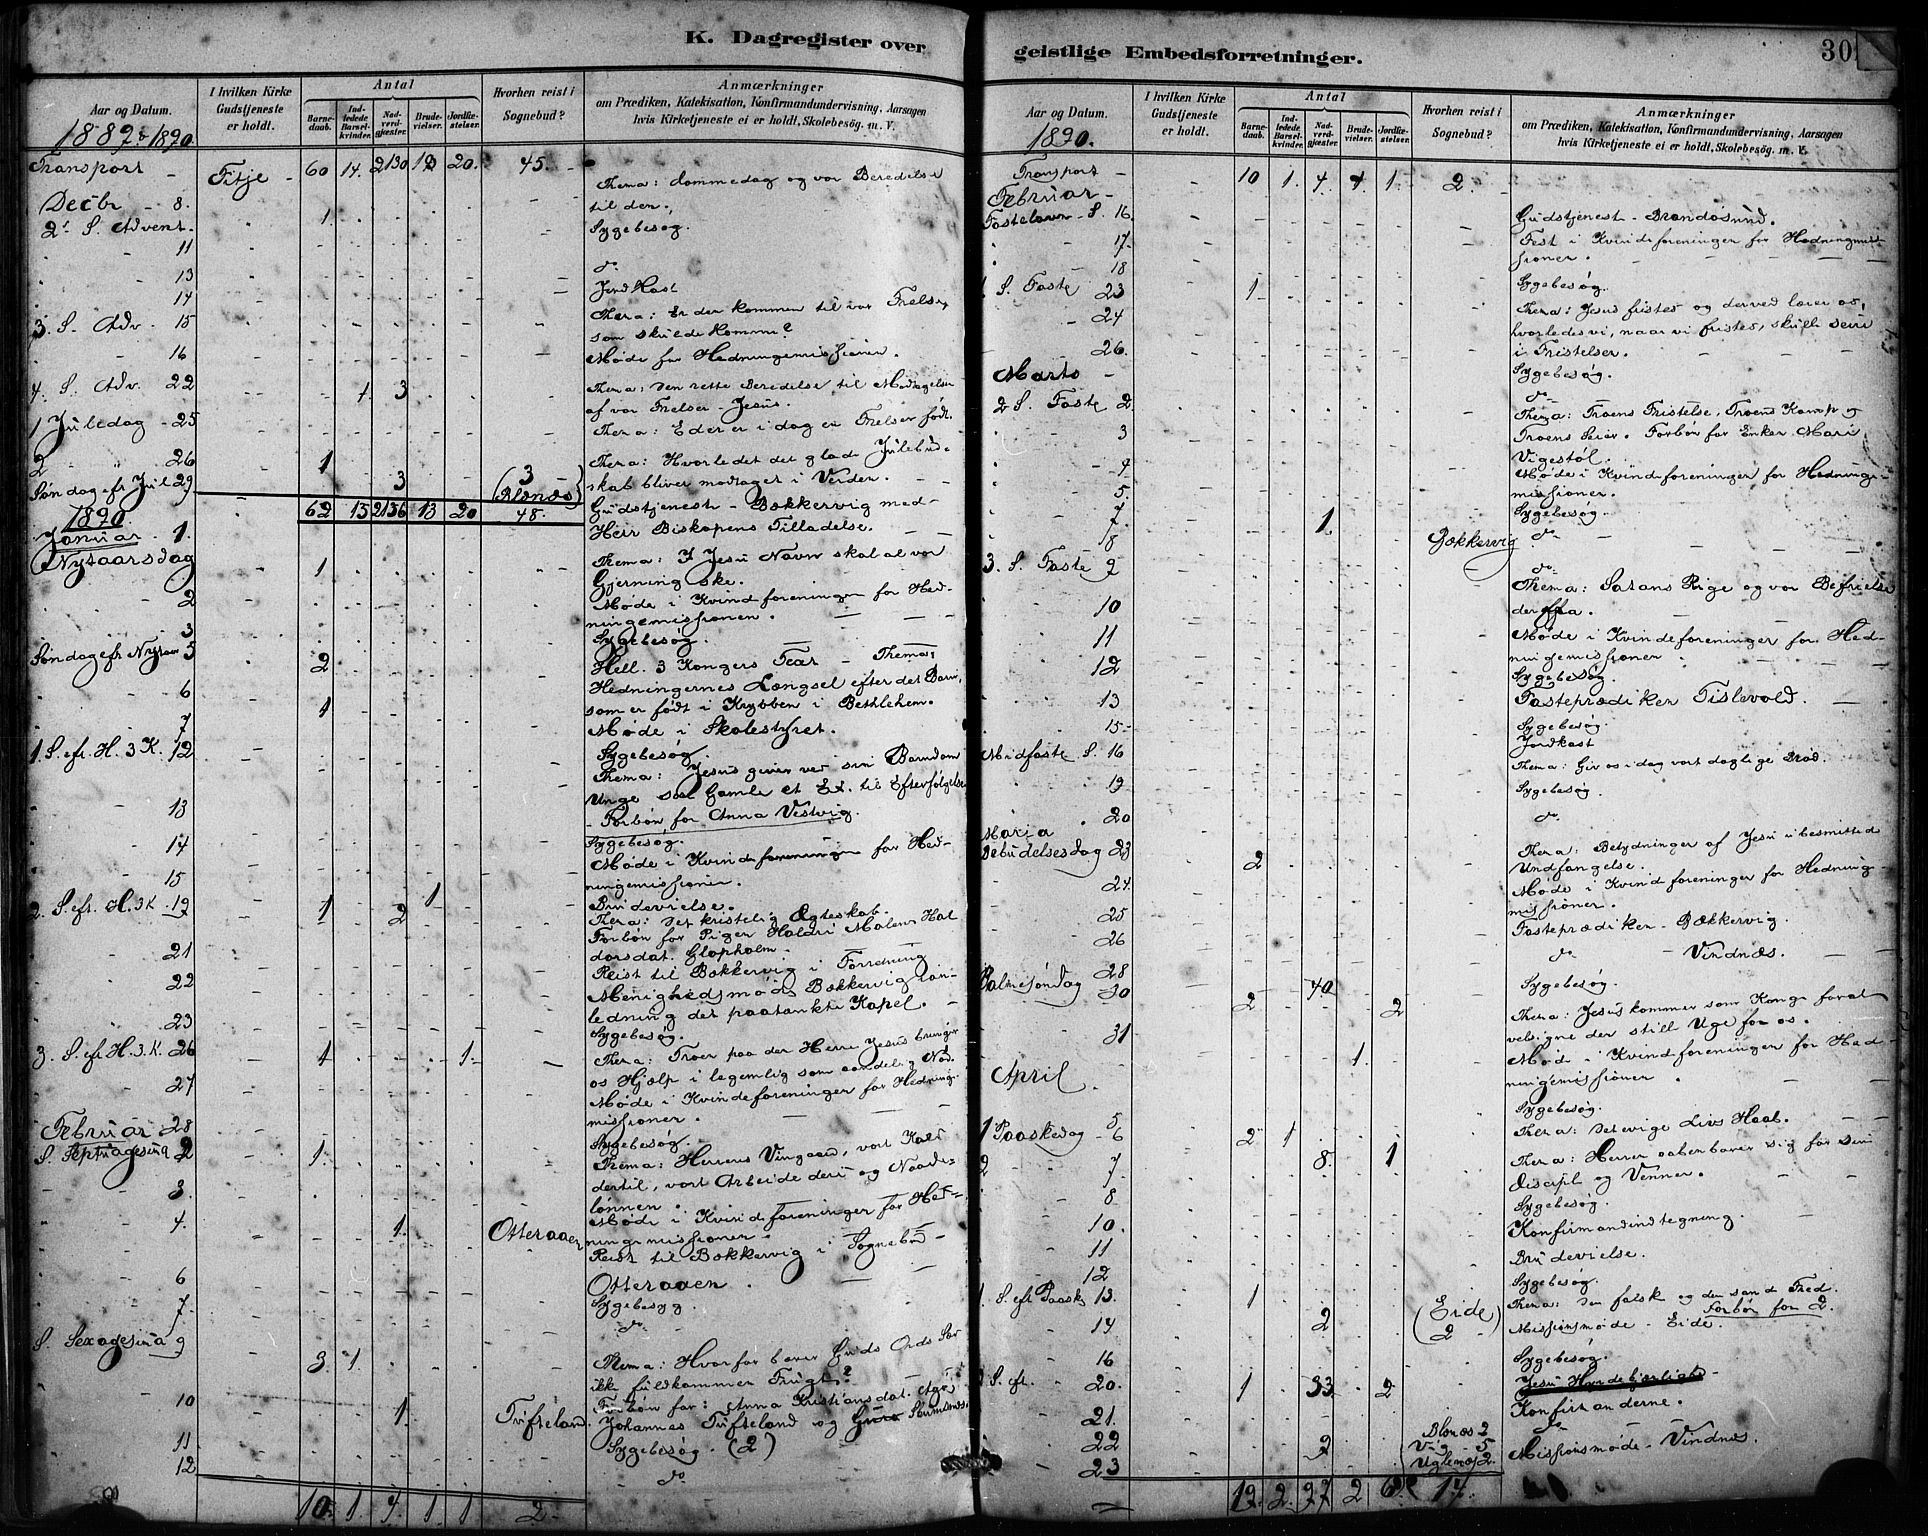 K. Dagregister over
Antal
Anmærkninger
Aar og Datum.
I hvilken Kirke Gudstjeneste er holdt.
Barnedaab.
Indledede Barselkvinder.
Nadverdgjæster.
Brudevielser.
Jordfæstelser.
Hvorhen reist i Sognebud?
om Prædiken, Katekisation, Konfirmandundervisning, Aarsagen
hvis Kirketjeneste ei er holdt, Skolebesøg. m. V.
1889 & 1890
Transport Fitje 60 14. 2130 12 20. 45.
Thema: Dommedag og vor Beredelse
Decbr 8. til den.
2' S. Advent. 1 Sygebesøg.
11
13 do
14 Jordkast
3. S. Adv. 15 Thema: Er der kommen til vor Frelser,
som skulde komme?
16 Møde for Hedningemissionen.
4. S. Adv. 22 1. 3 Thema: Den rette Beredelse til Modtagelse
af vor Frelser Jesus.
1 Juledag 25 Thema: Eder er i dag en Frelser født.
2 26 1 Thema: Hvorledes det glade Julebud-
skab bliver modtaget i Verden.
Søndag efr Jul 29 3 3
62 15 2136 13 20 48.
Gudstjeneste Bækkervig med
Herr Biskopens Tilladelse.
1890
Januar 1.
Nytaarsdag 1 Thema: I Jesu Navn skal al vor
Gjerning ske.
2 Møde i Kvindeforeningen for Hed-
ningemissionen.
3 Sygebesøg.
Søndag efr Nytaar 5 2 Hell. 3 Kongers Fest Thema:
Hedningernes Længsel efter det Barn,
6 1 som er født i Krybben i Bethlehem.
7 Møde i Skolestyret.
1 S. efr. H. 3 K. 12 Sygebesøg
Thema: Jesus giver ved sin Barndom
Unge saa Gamle et Ex. til Efterfølgelse
13 Forbøn for Anna Vestvig.
14 Sygebesøg.
Møde i Kvindeforeningen for Hed-
15 ningemissionen.
2. S. efr. H. 3 K. 19 1 2 1 Brudevielse.
Thema: Det kristelig Ægteskab.
Forbøn for Pigen Haldri Malene Hal
21 dorsdat. Glopholm.
22 Reist til Bækkervig i Forretning
Menighedsmøde Bækkervig i an-
23 ledning det paatænkte Kapel.
Sygebesøg.
3. S. efr H. 3. K. 26 1 1 Thema: Troen paa den Herre Jesus bringer
os Hjælp i legemlig som aandelig Nød.
27 Møde i Kvindeforeningen for Hedninge-
missionen.
28 Sygebesøg.
Februar
S. Septuagesima 2 1 Thema: Herrens Vingaard, vort Kald
dertil, vort Arbeide deri og Naade-
3 lønnen.
Møde i Kvindeforeningen for Hed-
4. 1. Otteraaen ningemissionen.
Reist til Bækkervig i Sognebud
6 Otteraaen.
7 Sygebesøg.
do
S. Sexagesima 9 3 1 Thema: Hvorfor bærer Guds Ords Sæd
ikke fuldkommen Frugt?
10 1. Tufteland. Forbøn for: Anna Kristiansdat.
Johannes Tufteland og
11 Sygebesøg. (2)
12 do
10. 1 4 1 1 2.
geistlige Embedsforretninger.
30
Antal
Anmærkninger
Aar og Datum.
I hvilken Kirke Gudstjeneste er holdt.
Barnedaab.
Indledede Barselkvinder.
Nadverdgjæster.
Brudevielser.
Jordfæstelser.
Hvorhen reist i Sognebud?
om Prædiken, Katekisation, Konfirmandundervisning, Aarsagen
hvis Kirketjeneste ei er holdt, Skolebesøg. m. V.
1890.
Transport 10 1. 4. 1 1. 2.
Februar
Fastelavn S. 16 Gudstjenest Brandøsund.
17. Fest i Kvindeforeningen for Hedningemis-
sionen.
18 Sygebesøg.
1 S. Faste 23 1 Thema: Jesus fristes og derved lærer os,
24 hvorledes vi, naar vi fristes, skulle seire
26. i Fristelsen.
Marts Sygebesøg.
do
2 S. Faste 2 Thema: Troens Fristelse, Troens Kamp og
3 Troens Seier. Forbøn for Enken Mari
Vigestøl.
4 Møde i Kvindeforeningen for Hedninge-
5. missionen.
7. 1. Sygebesøg.
8 Bækkervig do
do
3. S. Faste 9 Thema: Satans Rige og vor Befrielse
10 derfra.
11 Møde i Kvindeforeningen for Hed-
ningemissionen.
12 Sygebesøg.
13 Fasteprædiken Tislevold.
15 Sygebesøg
Jordkast
Midfaste S. 16 Thema: Giv os i dag vort daglige Brød.
19 Sygebesøg.
20 do
Maria
Bebudelsesdag 23 2 Thema: Betydningen af Jesu ubesmittede
Undfangelse.
24. Møde i Kvindeforeningen for Hedninge-
25 missionen.
26 Fasteprædiken Bækkervig.
do Vindnæs.
28 40 Sygebesøg.
Palmesøndag 30 2 2 Thema: Jesus kommer som Konge for at
velsigne den stille Uge for os.
31 1 Møde i Kvindeforeningen for Hed-
ningemissionen.
April
5 Sygebesøg.
1 Paaskedag 6 2 1 Thema: Det evige Livs Haab.
2 7. 8. 1 Thema: Herren aabenbarer sig for sine
Discipl og Venner.
8 Sygebesøg.
10. Konfirmandindtegning.
11 Brudevielse.
12 Sygebesøg.
1. S. efr Paaske 13. 1 Thema: Den falsk og den sand Fred.
Forbøn for 2.
14 2 (Eide) 2 Missionsmøde Eide.
16 Sygebesøg.
S. efr. 20. 1 33 2 Jesu Hyrdekjærlighed
Konfirmanderne.
21. do
22 2 Missionsmøde Vindnæs.
23
19. 2. 37 2 14.